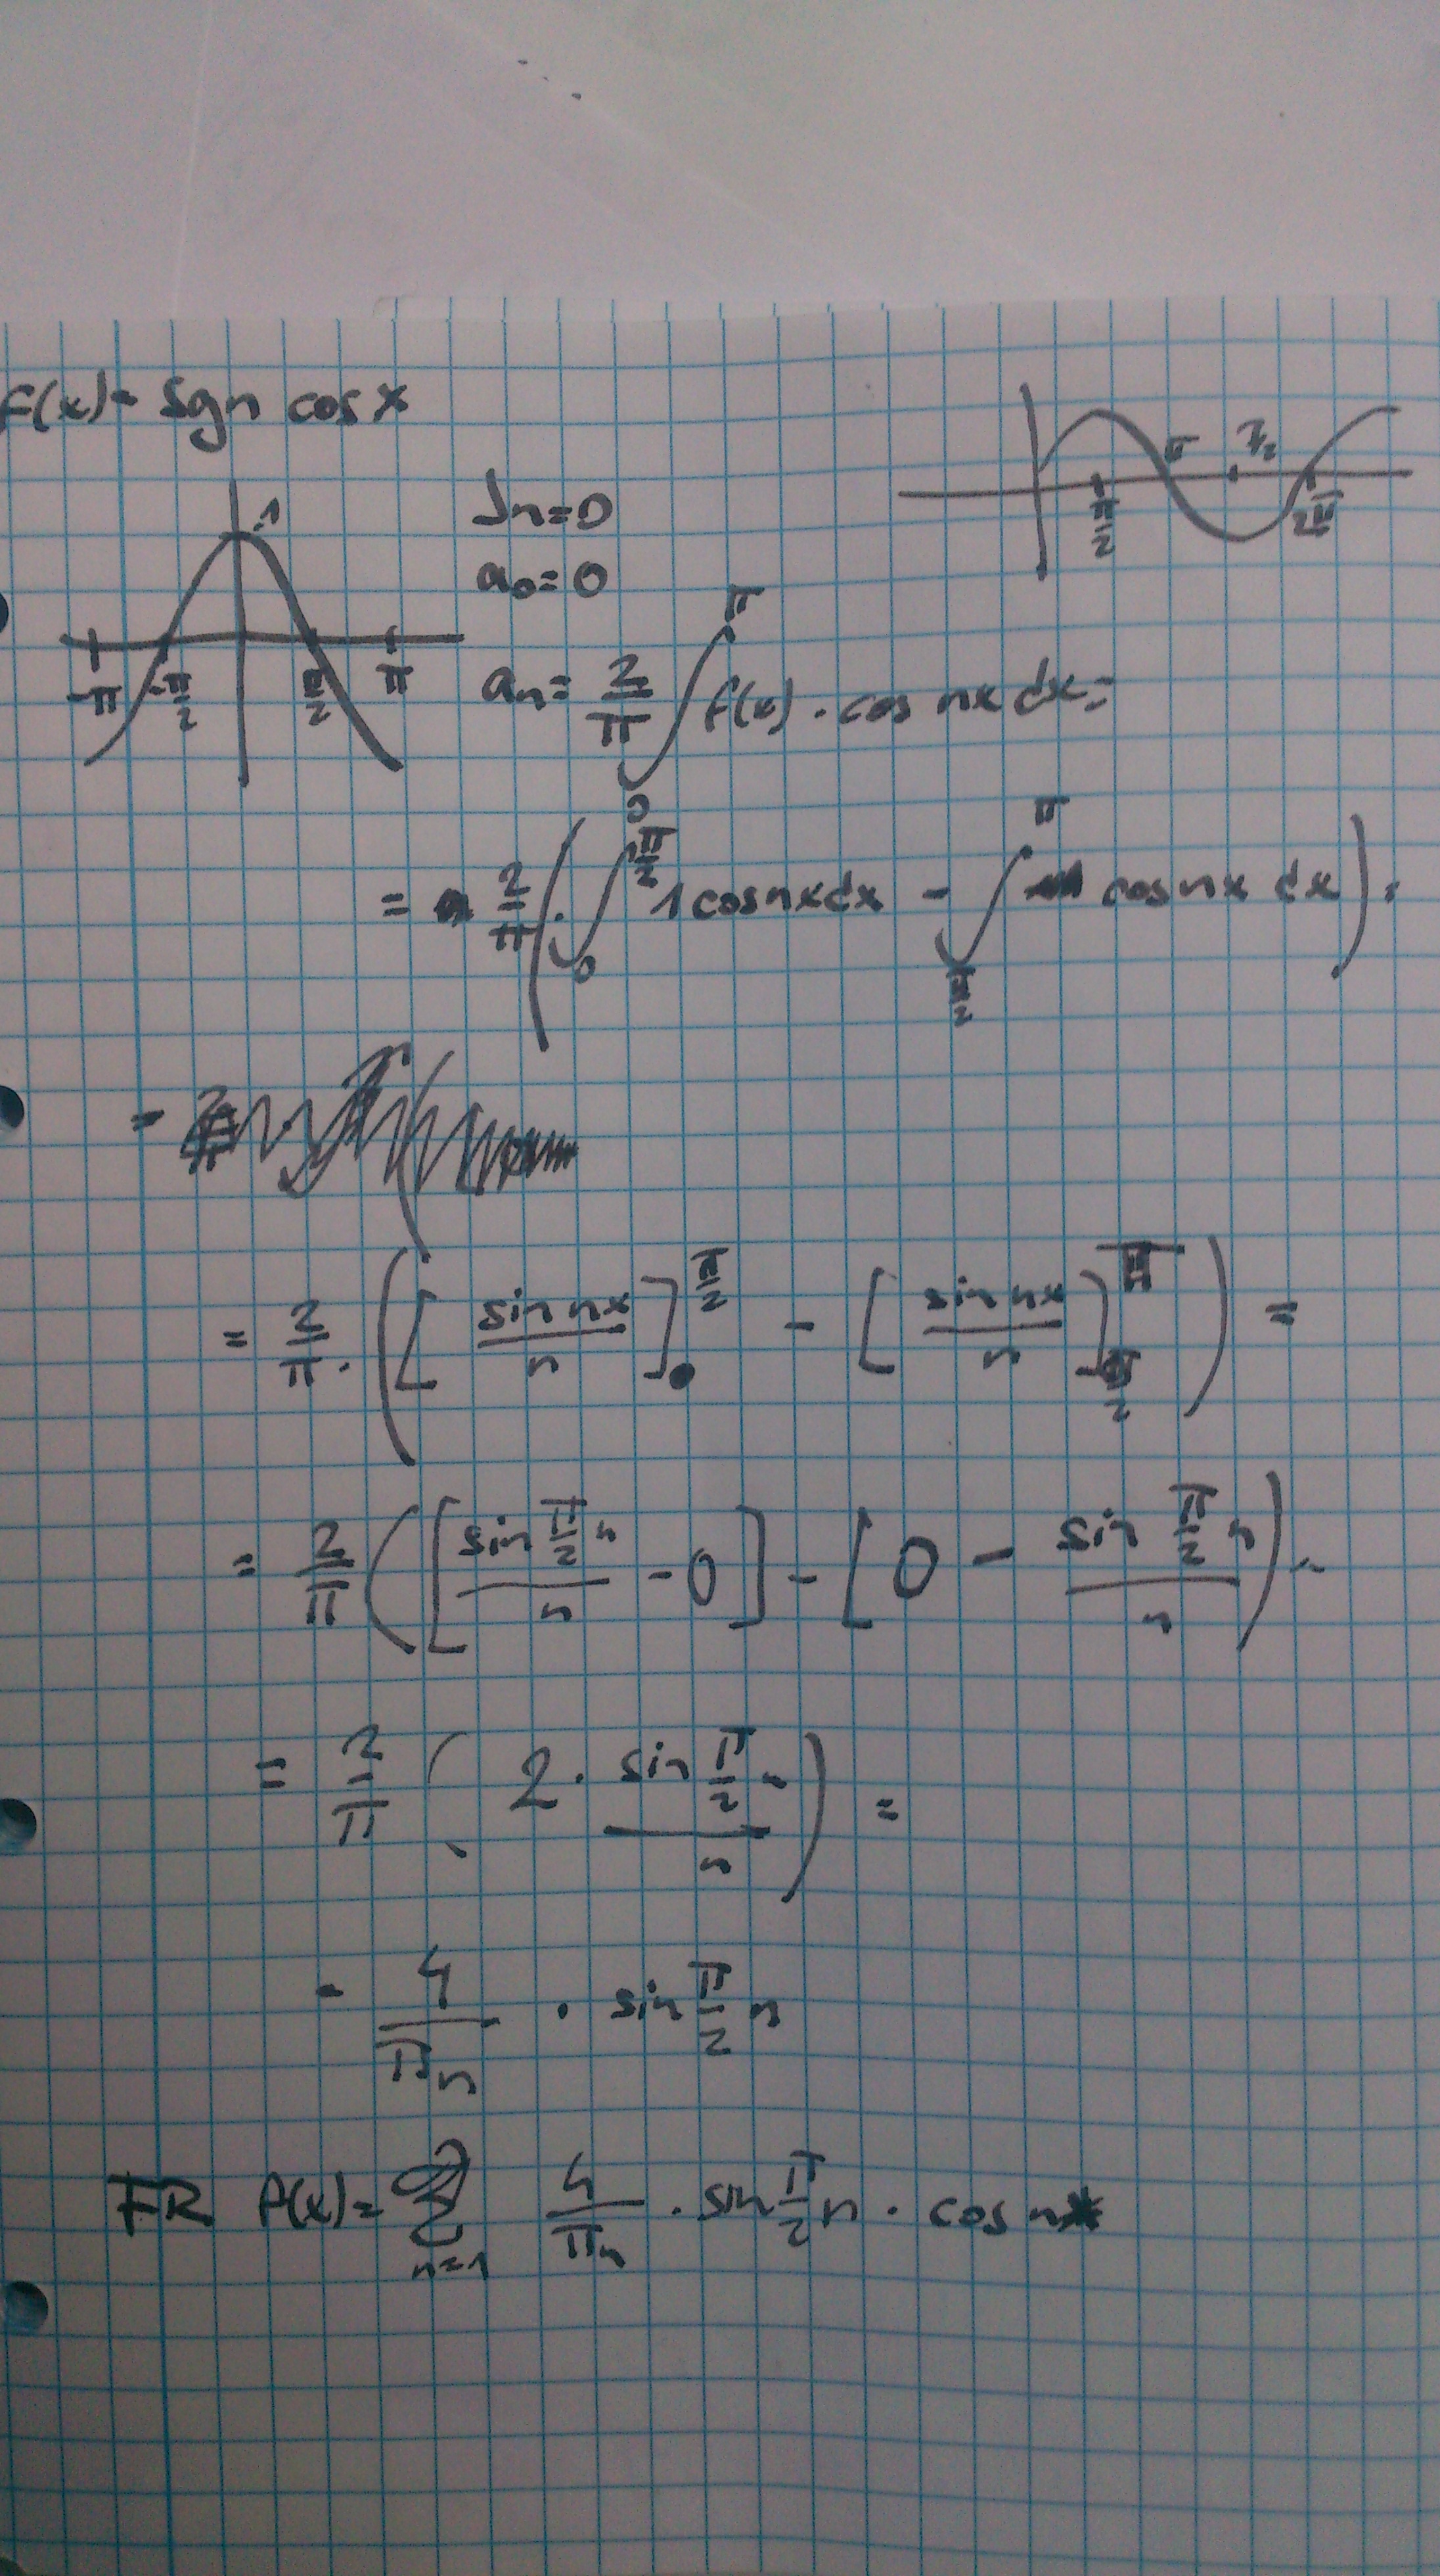 f(x) = sgn cos x
1
-π -π/2 π/2 π
bn = 0
a0 = 0
π/2 π 2π
an = 2/π ∫_0^π f(x) · cos nx dx =
= 2/π · ( ∫_0^{π/2} 1 cos nx dx - ∫_{π/2}^π 1 cos nx dx ) =
=
= 2/π · ( [ sin nx / n ]_0^{π/2} - [ sin nx / n ]_{π/2}^π ) =
= 2/π ( [ sin π/2 n / n - 0 ] - [ 0 - sin π/2 n / n ) =
= 2/π ( 2 · sin π/2 n / n ) =
= 4 / πn · sin π/2 n
FR f(x) = ∑_{n=1} 4 / πn · sin π/2 n · cos nx